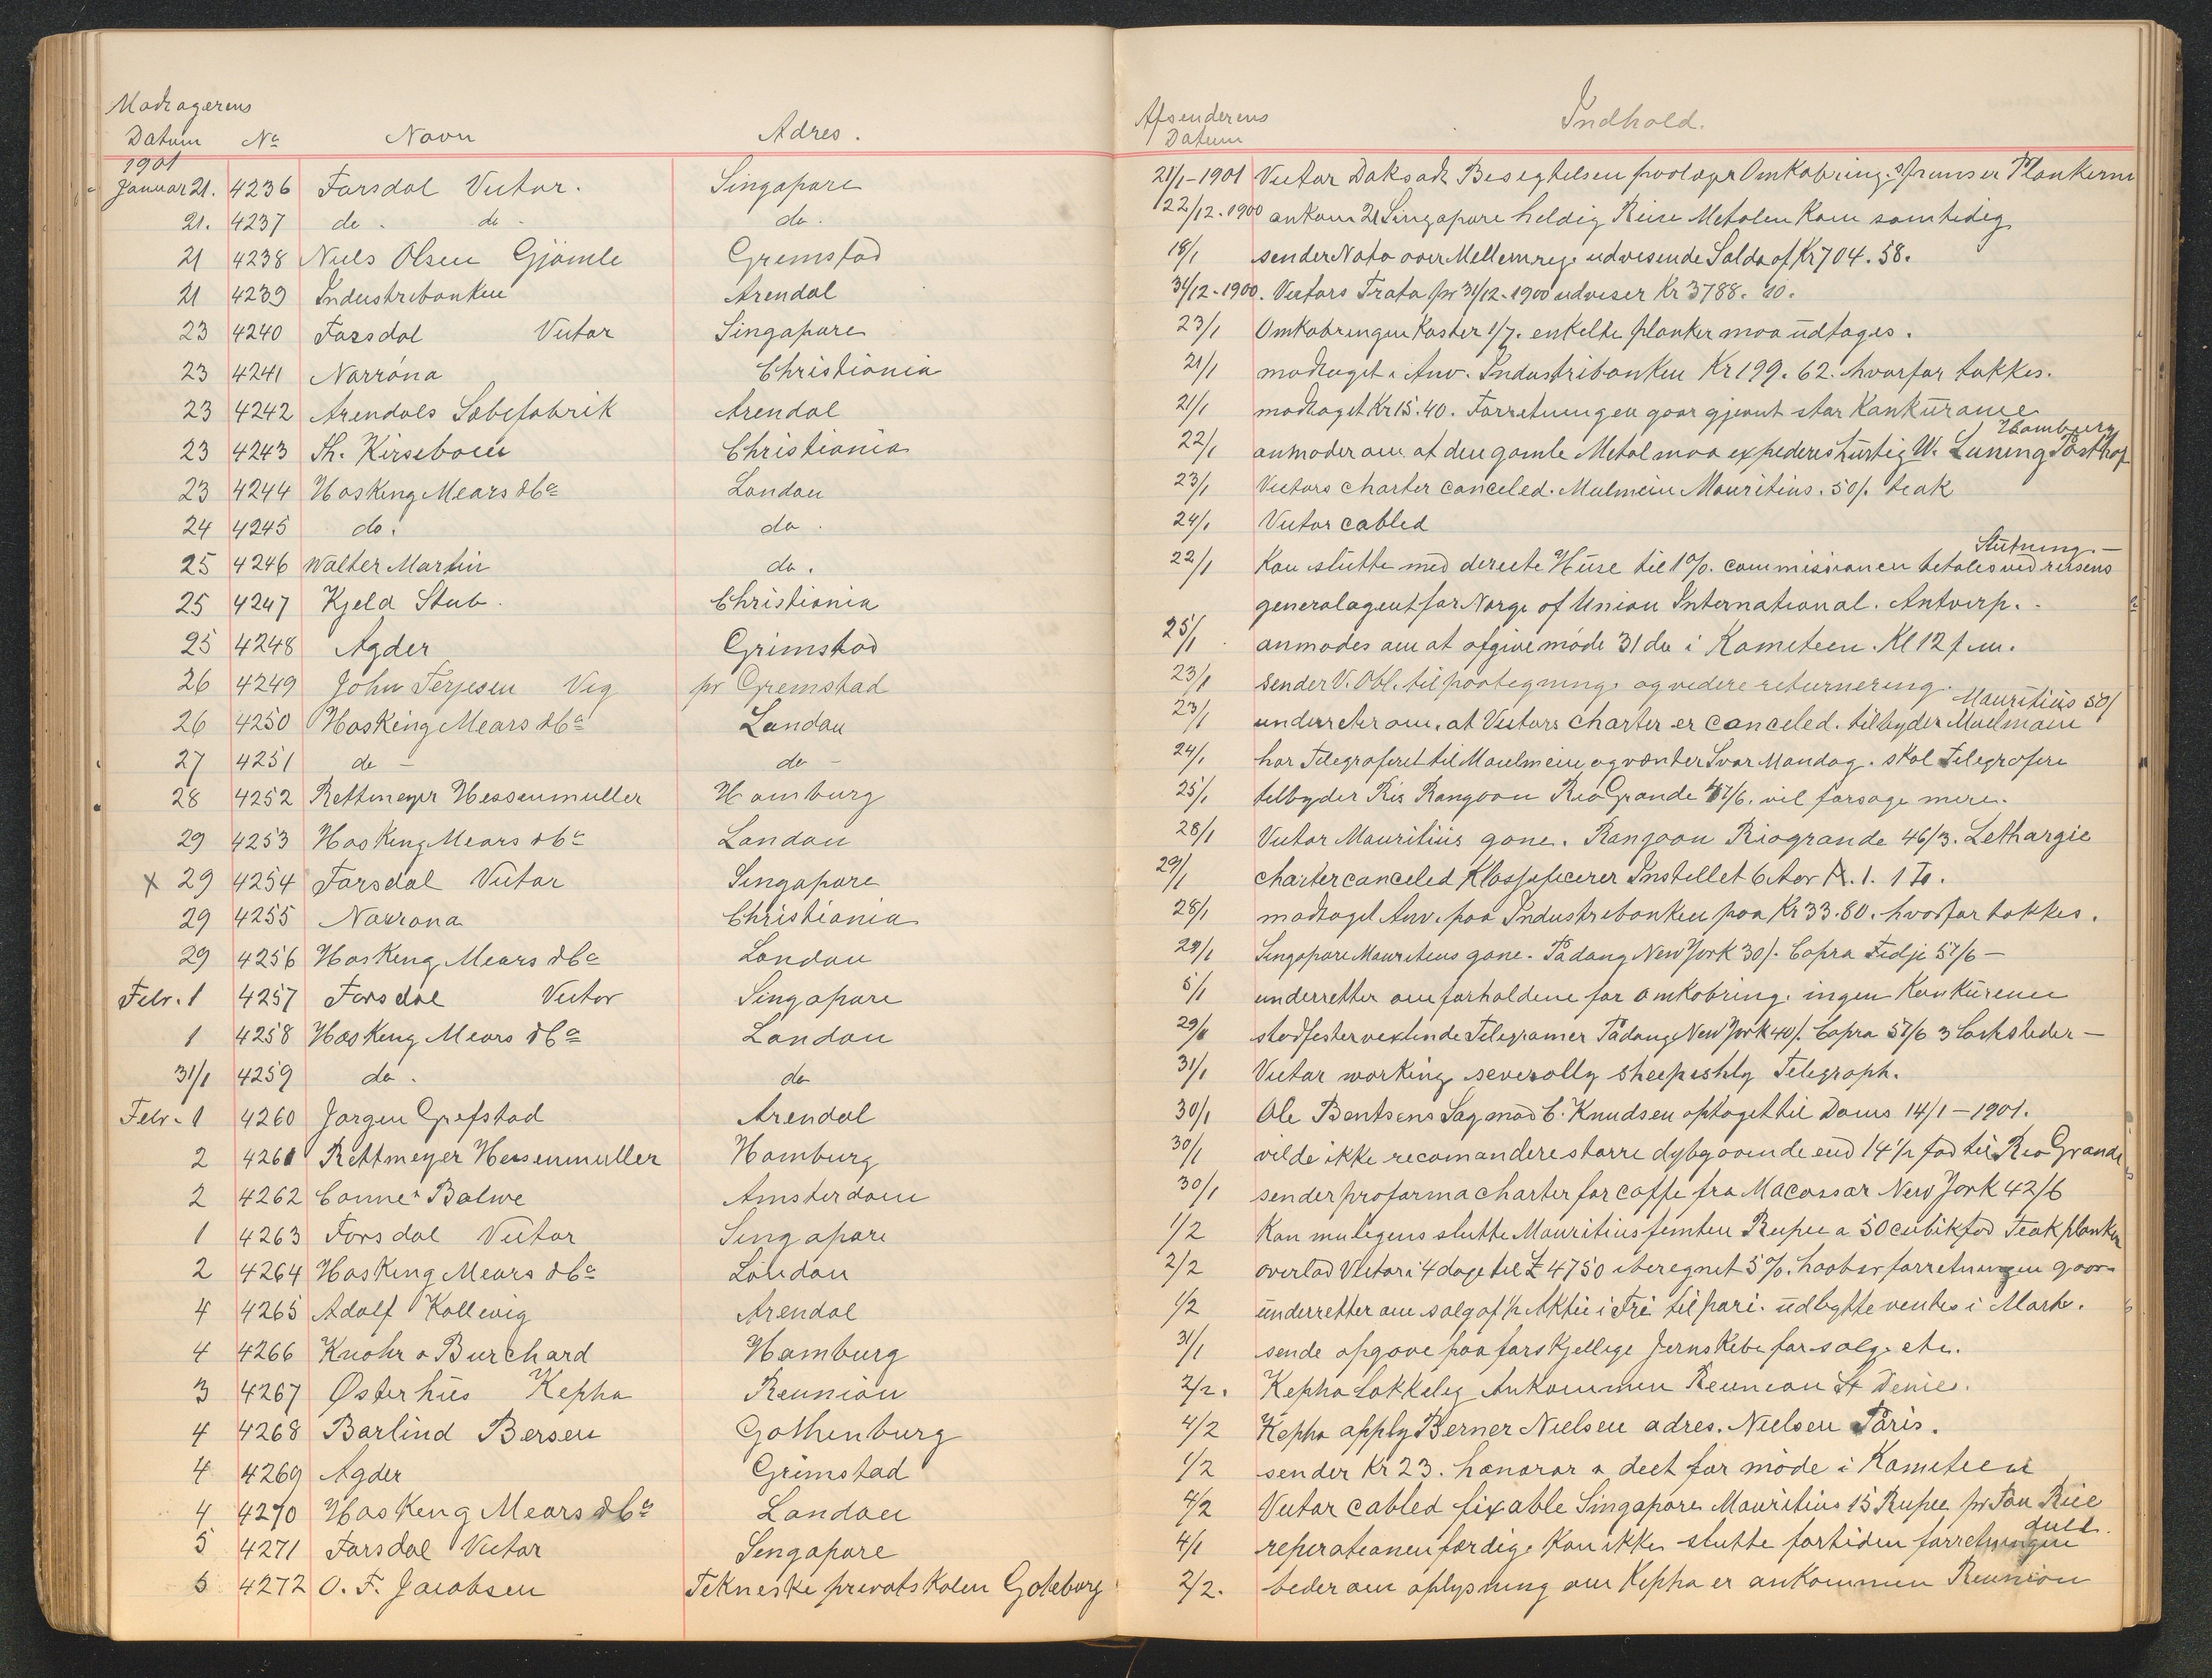 Modtagerens
Datum No Navn Adres.
1901
Januar 21. 4236 Farsdal Victor. Singapore
21. 4237 do. do. do.
21 4238 Niels Olsen Gjömle Gremstad
21 4239 Industribanken Arendal
23 4240 Farsdal Victor Singapore
23 4241 Norröna Christiania
23 4242 Arendals Sæbefabrik Arendal
23 4243 Th. Kirsebom Christiania
23 4244 Hosking Mears & Co London
24 4245 do. do.
25 4246 Walter Martin do.
25 4247 Kjeld Stub. Christiania
25 4248 Agder Grimstad
26 4249 John Terjesen Vig pr Gremstad
26 4250 Hosking Mears & Co London
27 4251 do - do -
28 4252 Rettmeyer Hessenmuller Hamburg
29 4253 Hosking Mears & Co London
x 29 4254 Farsdal Victor Singapore
29 4255 Norrona Christiania
29 4256 Hosking Mears & Co London
Febr. 1 4257 Farsdal Victor Singapore
1 4258 Hosking Mears & Co London
31/1 4259 do. do
Febr. 1 4260 Jorgen Grefstad Arendal
2 4261 Rettmeyer Hessenmuller Hamburg
2 4262 Conne & Balwe Amsterdam
1 4263 Farsdal Victor Singapore
2 4264 Hosking Mears & Co London
4 4265 Adolf Kallevig Arendal
4 4266 Knohr & Burchard Hamburg
3 4267 Østerhus Kepha Reunion
4 4268 Barlind Bersen Gothenburg
4 4269 Agder Grimstad
4 4270 Hosking Mears & Co London
5 4271 Farsdal Victor Singapore
5 4272 O. F. Jacobsen Tekneske privatskolen Goteborg
Afsenderens
Datum Indhold.
21/1-1901 Victor Doksat Besegtelsen paalægr Omkobring. Plankerne
22/12-1900 ankom 21 Singapore heldig Reise Metalen kom samtidig
18/1 sender Nota over Mellemreg. udvesende Saldo af Kr 704.58.
31/12-1900. Victors Trata pr 31/12-1900 udviser Kr 3788.10.
23/1 Omkobringen Koster 1/7. enkelte planker maa udtages.
21/1 modtaget Anv. Industribanken Kr 199.62. hvorfor takkes.
21/1 modtaget Kr 15.40. Forretningen gaar gjevnt stor Konkurance
Hamburg
22/1 anmoder om at den gamle Metal maa expederes hurtig W. Luning Posthof
23/1 Victors charter canceled. Mulmein Mauritius. 50/. teak
24/1 Victor cabled
Slutning. -
22/1 Kan slutte med derecte Huse til 1%. commissionen betales ved reisens
generalagent for Norge of Union International. Antverp. -
25/1 anmodes om at afgive möde 31 de i Kometeen. Kl 12 f.m.
23/1 sender V. Obl. til paategning. og videre returnering.
Mauritius 50/
23/1 underreter om, at Victors charter er canceled. tilbyder Mulmain
24/1 har Telegraferet til Moulmein og venter Svar Mandag. skal Telegrafere
25/1 telbyder Ris Rangoon Rio Grande 47/6. vil forsøge mere.
28/1 Victor Mauritius gone. Rangoon Riogrande 46/3. Lethargie
29/1 charter canceled Klassificerer Instellet 6 Aar A. 1. 1 To.
28/1 modtaget Anv. paa Industrebanken paa Kr 33.80. hvorfor takkes.
29/1 Singapore Mauriteus gone. Padang New York 30/. Copra Fidji 57/6 -
5/1 underretter om forholdene for omkobring. ingen Konkurence
29/1 stadfester vexlende Telegramer Padang New York 40/. Copra 57/6 3 -
31/1 Victor working severally sheepishly Telegraph.
30/1 Ole Bentsens Sag mod C. Knudsen optaget til Doms 14/1 - 1901.
30/1 vilde ikke recomandere storre dybgaaende end 14 1/2 fod til Rio Grande
30/1 sender proforma charter for caffe fra Macassar New York 42/6
1/2 Kan mulegens slutte Mauritius femten Rupee a 50 cubikfod Teak planker
2/2 overlod Victor i 4 dage til £ 4750 iberegnet 5%. haaber forretningen gaar
1/2 underretter om salg af 1/2 Aktie i Fri til pari. udbytte ventes i Marts.
31/1 sende opgave paa forskjellige Jernskebe for salg etc.
2/2. Kepha Lakkeleg Ankommen Reunion St Denies.
4/2 Kepha apply Berner Nielsen adres. Nielsen Paris.
1/2 sender Kr 23. honorar & deet for möde i Kometeen
4/2 Victor cabled fixable Singapore Mauritius 15 Rupee pr Ton Rice
dull.
4/1 reperationen færdig. Kan ikke slutte fortiden forretningen
2/2. beder om oplysning om Kepha er ankommen Reunion